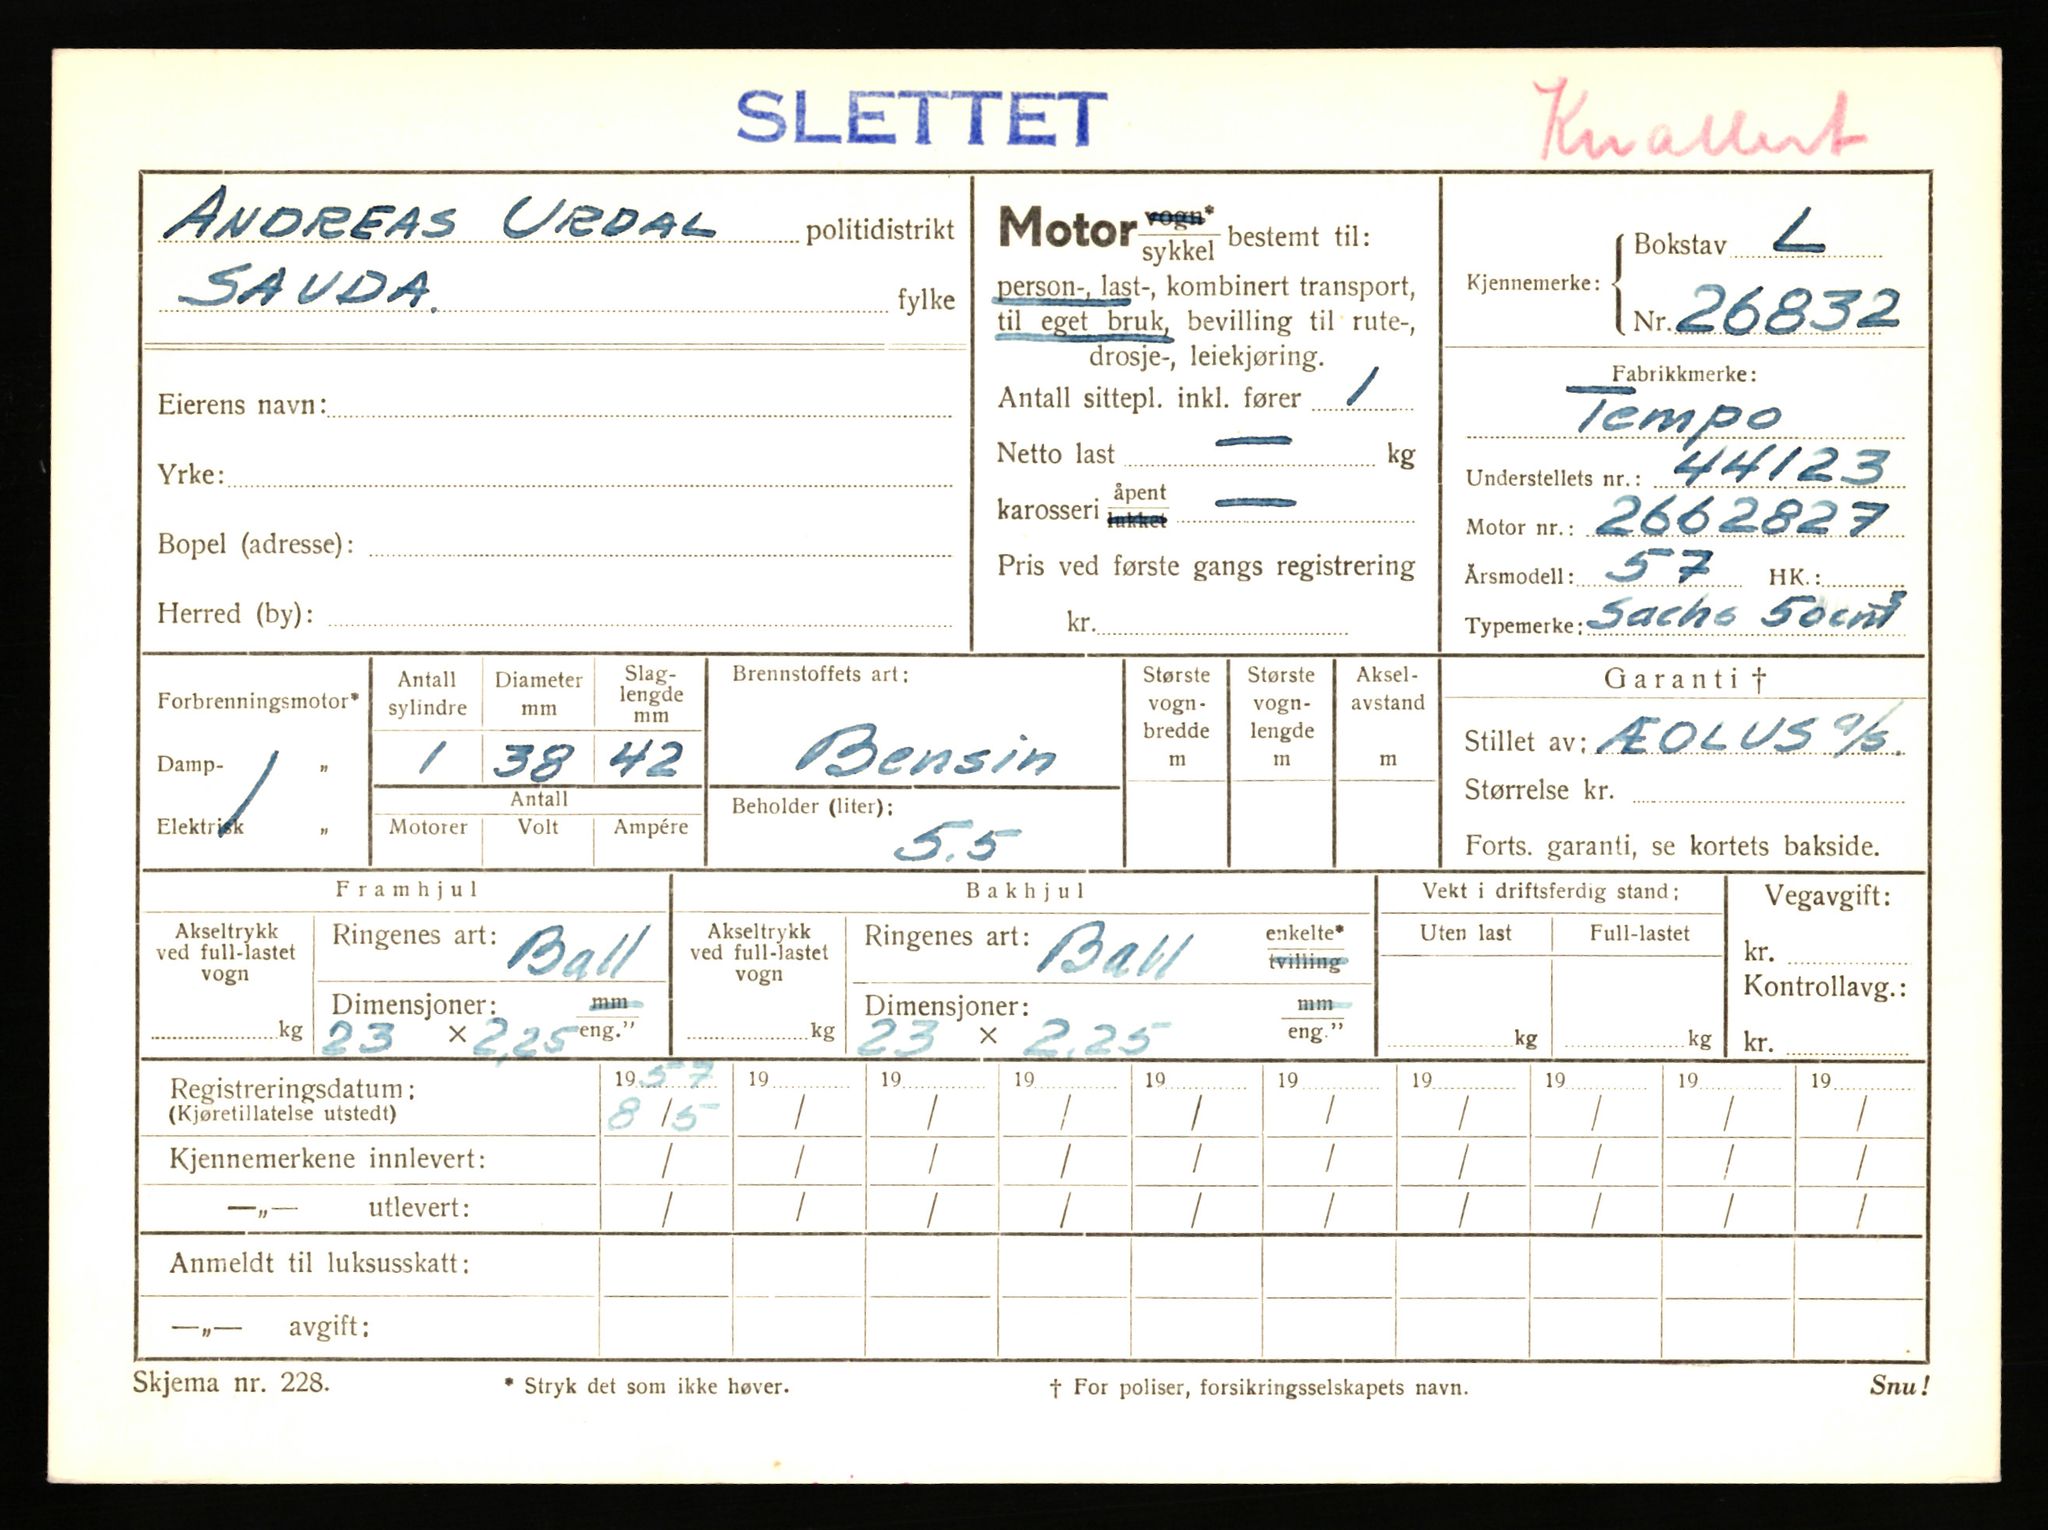 SLETTET
Knallert
ANDREAS URDAL politidistrikt
SAUDA. fylke
Eierens navn:
Yrke:
Bopel (adresse):
Herred (by):
Motor vogn* / sykkel bestemt til:
person-, last-, kombinert transport,
til eget bruk, bevilling til rute-,
drosje-, leiekjøring.
Antall sittepl. inkl. fører 1
Netto last — kg
karosseri åpent / lukket —
Pris ved første gangs registrering
kr.
Kjennemerke: Bokstav L
Nr. 26832
Fabrikkmerke:
Tempo
Understellets nr.: 44123
Motor nr.: 2662827
Årsmodell: 57 HK.:
Typemerke: Sachs 50cm³
Forbrenningsmotor*
Damp- „
Elektrisk „
Antall sylindre 1
Diameter mm 38
Slag-lengde mm 42
Antall
Motorer Volt Ampére
Brennstoffets art:
Bensin
Beholder (liter):
5.5
Største vogn-bredde m
Største vogn-lengde m
Aksel-avstand m
Garanti †
Stillet av: ÆOLUS a/s.
Størrelse kr.
Forts. garanti, se kortets bakside.
Framhjul
Akseltrykk ved full-lastet vogn kg
Ringenes art: Ball
Dimensjoner: mm
23 × 2,25 eng.”
Bakhjul
Akseltrykk ved full-lastet vogn kg
Ringenes art: Ball enkelte* / tvilling
Dimensjoner: mm
23 × 2.25 eng.”
Vekt i driftsferdig stand:
Uten last Full-lastet
kg kg
Vegavgift:
kr.
Kontrollavg.:
kr.
Registreringsdatum: 1957 19 19 19 19 19 19 19 19 19
(Kjøretillatelse utstedt) 8/5 / / / / / / / / /
Kjennemerkene innlevert: / / / / / / / / / /
—„— utlevert: / / / / / / / / / /
Anmeldt til luksusskatt:
—„— avgift:
Skjema nr. 228. * Stryk det som ikke høver. † For poliser, forsikringsselskapets navn. Snu!